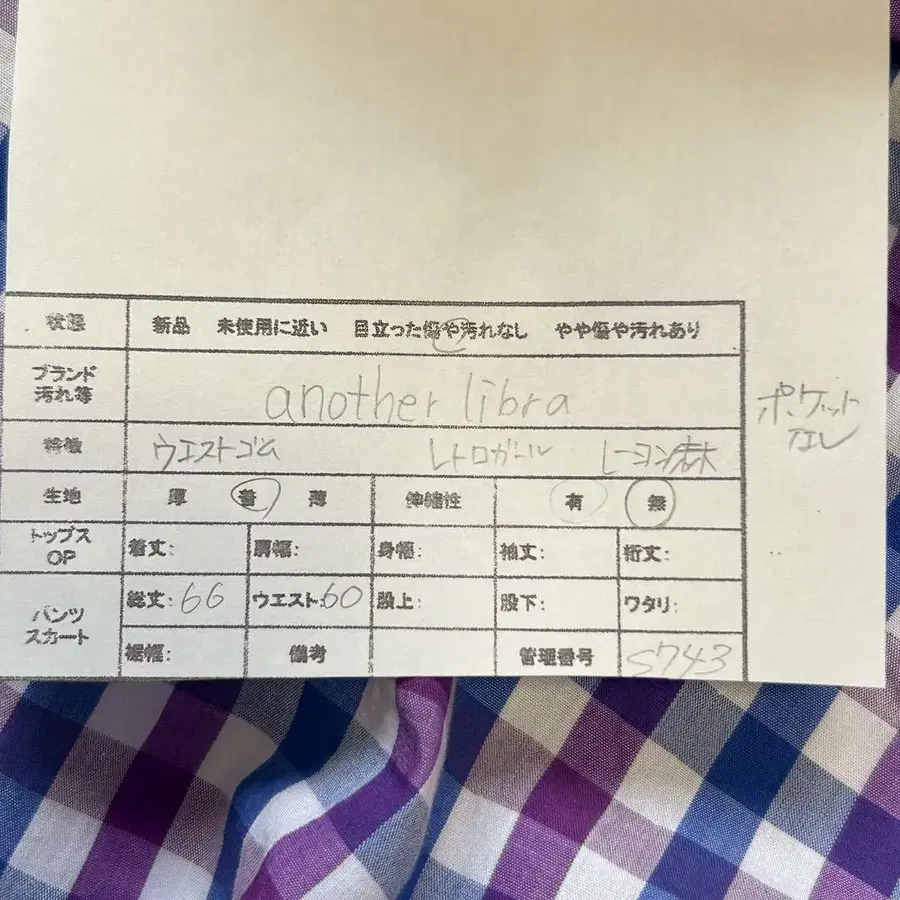 状態 新品 未使用に近い 目立った傷や汚れなし やや傷や汚れあり
ブランド
汚れ等
another libra
特徴 ウエストゴム レトロガール レーヨン麻
生地 厚 着 薄 伸縮性 有 無
トップス
OP
着丈: 肩幅: 身幅: 袖丈: 裄丈:
パンツ
スカート
総丈:66 ウエスト:60 股上: 股下: ワタリ:
裾幅: 備考 管理番号 S743
ポケット